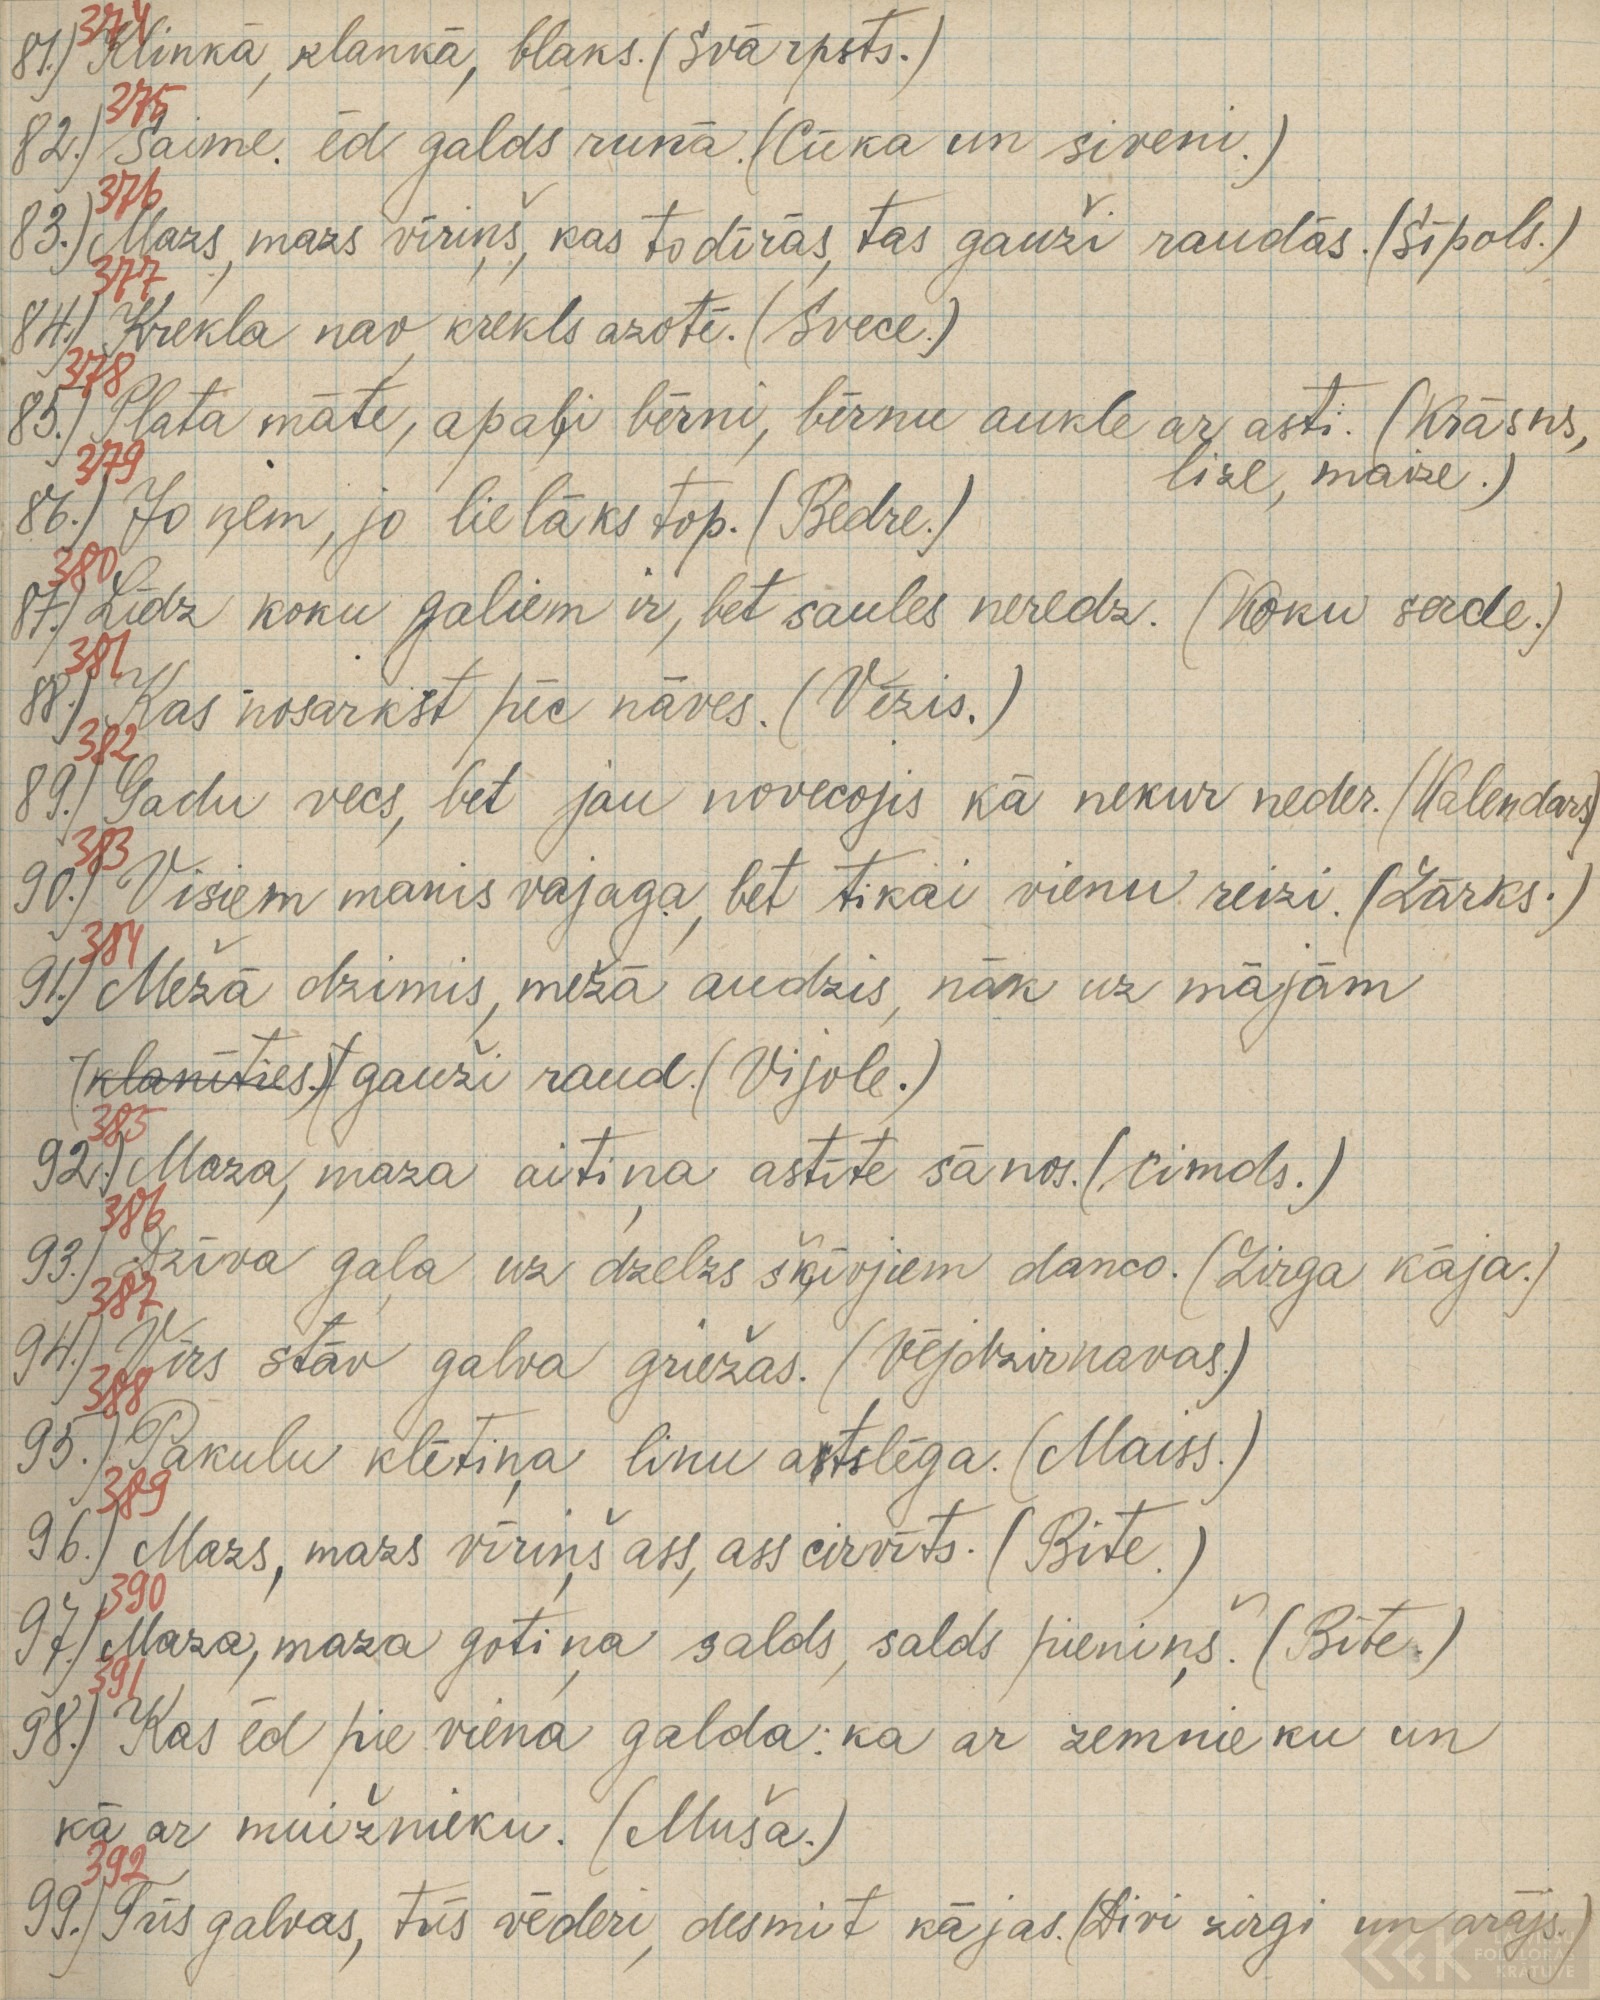 374
81.) Klinkā, klankā, blaks. (Svārpsts.)
375
82.) Saime. ēd galds runā. (Cūka un siveni.)
376
83.) Mazs, mazs vīriņš, kas to dīrās, tas gauži raudās. (Sīpols.)
377
84.) Krekla nav, krekls azotē. (Svece.)
378
85.) Plata māte, apaļi bērni, bērnu auklē ar asti. (Krāsns,
lize, maize.)
379
86.) Jo ņem, jo lielāks top. (Bedre.)
380
87.) Līdz koku galiem ir, bet saules neredz. (Koku serde.)
381
88.) Kas nosarkst pēc nāves. (Vēzis.)
382
89.) Gadu vecs, bet jau novecojis kā nekur neder. (Kalendars)
383
90.) Visiem manis vajaga, bet tikai vienu reizi. (Zārks.)
384
91.) Mežā dzimis, mežā audzis, nāk uz mājām
(klanīties.) gauži raud. (Vijole.)
385
92.) Maza, maza aitiņa astīte sānos. (cimds.)
386
93.) Dzīva gaļa uz dzelzs šķīvjiem danco. (Zirga kāja.)
387
94.) Vīrs stāv galva griežas. (Vējdzirnavas.)
388
95.) Pakulu klētiņa linu atslēga. (Maiss.)
389
96.) Mazs, mazs vīriņš ass, ass cirvīts. (Bite.)
390
97.) Maza, maza gotiņa salds, salds pieniņš. (Bite.)
391
98.) Kas ēd pie viena galda: ka ar zemnieku un
kā ar muižnieku. (Muša.)
392
99.) Trīs galvas, trīs vēderi, desmit kājas. (Divi zirgi un arājs.)
LATVIEŠU
FOLKLORAS
KRĀTUVE